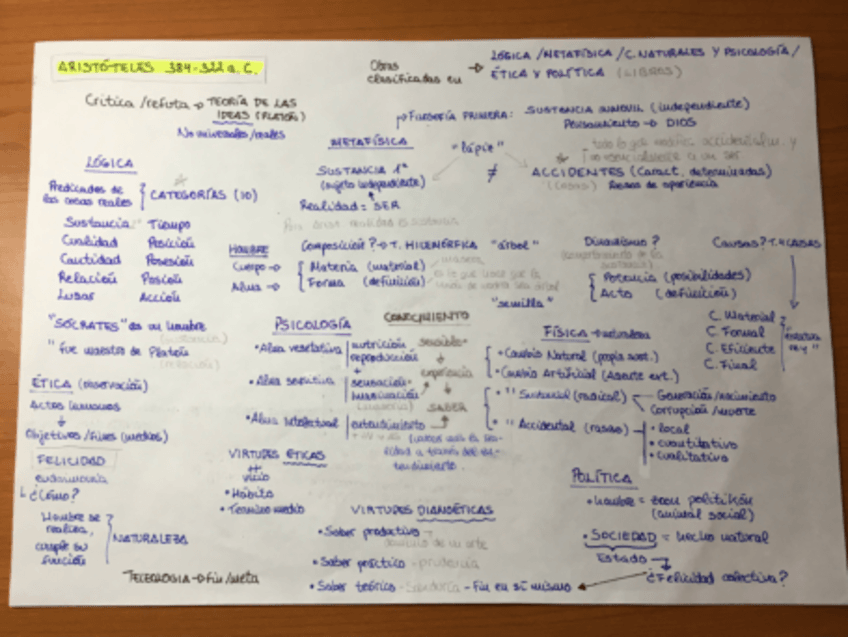 ARISTÓTELES 384-322 a.C.
Obras clasificadas en → LÓGICA / METAFÍSICA / C. NATURALES Y PSICOLOGÍA /
ÉTICA Y POLÍTICA (LIBROS)
Critica / refuta → TEORÍA DE LAS
IDEAS (PLATÓN)
No universales/reales
FILOSOFÍA PRIMERA: SUSTANCIA INMÓVIL (independiente)
Pensamiento → DIOS
METAFÍSICA
"lápiz"
SUSTANCIA 1ª
(sujeto independiente)
Realidad = SER
≠
ACCIDENTES (Caract. determinadas)
(cosas) Rasgos de apariencia
LÓGICA
Predicados de
las cosas reales
CATEGORÍAS (10)
Sustancia Tiempo
Cualidad Posición
Cantidad Posesión
Relación Pasión
Lugar Acción
"SÓCRATES" es un hombre
(sustancia)
" fue maestro de Platón
(relación)
HOMBRE
Cuerpo →
Alma →
Composición? → T. HILEMÓRFICA "árbol"
Materia (material)
Forma (definición)
madera
"semilla"
Dinamismo?
Potencia (posibilidades)
Acto (definición)
Causas? T. 4 CAUSAS
C. Material
C. Formal
C. Eficiente
C. Final
PSICOLOGÍA
• Alma vegetativa
nutrición
reproducción
+
• Alma sensitiva
sensación
imaginación
• Alma intelectual
entendimiento
CONOCIMIENTO
sensible
experiencia
SABER
FÍSICA → naturaleza
• Cambio Natural (propio mov.)
• Cambio Artificial (Agente ext.)
• " Sustancial (radical)
Generación/nacimiento
Corrupción/muerte
• " Accidental (rasgo)
• local
• cuantitativo
• cualitativo
ÉTICA (observación)
Actos humanos
Objetivos / Fines (medios)
FELICIDAD
eudaimonía
¿Cómo?
Hombre se
realiza,
cumple su
función
NATURALEZA
TELEOLOGÍA → fin/meta
VIRTUDES ÉTICAS
≠
vicio
• Hábito
• Término medio
VIRTUDES DIANOÉTICAS
• Saber productivo -
dominio de un arte
• Saber práctico - prudencia
• Saber teórico - Sabiduría - Fin en sí mismo
POLÍTICA
• hombre = zoon politikón
(animal social)
• SOCIEDAD = hecho natural
Estado
¿Felicidad colectiva?